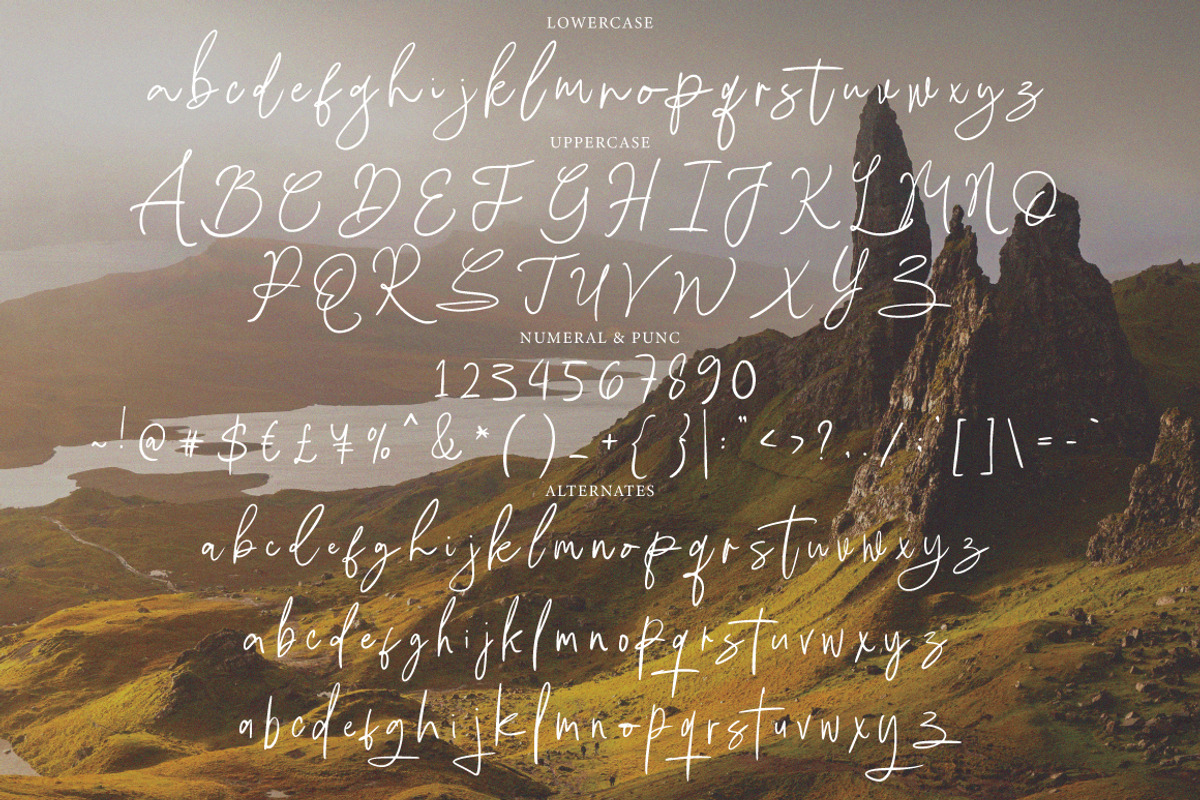 LOWERCASE
abcdefghijklmnopqrstuvwxyz
UPPERCASE
ABCDEFGHIJKLMNO
PQRSTUVWXYZ
NUMERAL & PUNC
1234567890
~!@#$€£¥%^&*()_+{}|:"<>?,./;'[]\=-`
ALTERNATES
abcdefghijklmnopqrstuvwxyz
abcdefghijklmnopqrstuvwxyz
abcdefghijklmnopqrstuvwxyz